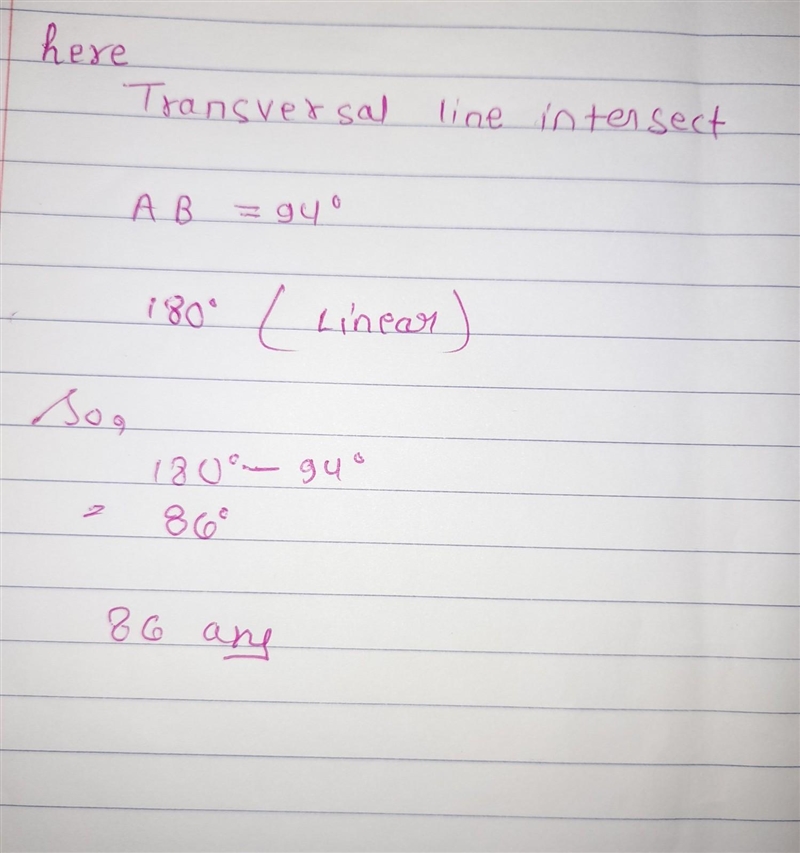 here
Transversal line intersect
AB = 94°
180° (Linear)
So,
180° - 94°
= 86°
86 ans